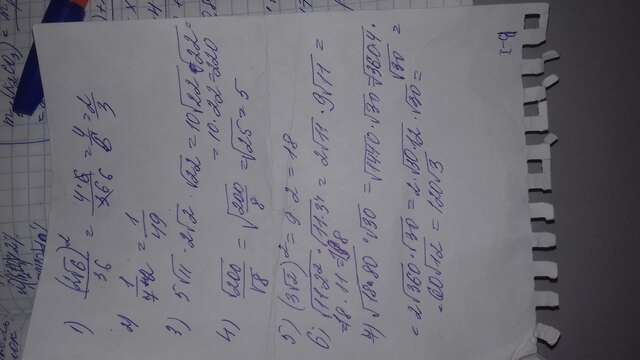 1) (2√6)²/36 = 4·6/36 6 = 4/6 = 2/3
2) 1/7² = 1/49
3) 5√11 · 2√2 · √22 = 10√22 · √22 =
= 10 · 22 = 220
4) √200/√8 = √200/8 = √25 = 5
5) (3√2)² = 9 · 2 = 18
6) √11·2² · √11·3⁴ = 2√11 · 9√11 =
= 18 · 11 = 198
7) √18·80 · √30 = √1440 · √30 = √360·4 ·
√30 =
= 2√360 · √30 = 2 · √30·12 · √30 =
= 60√12 = 120√3
В-1